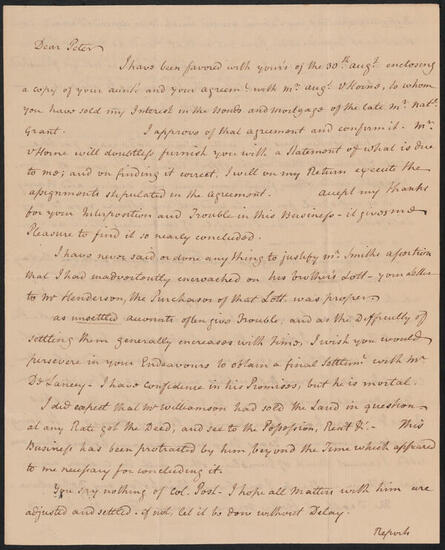 Dear Peter
I have been favored with your's of the 30th. augt. enclosing
a copy of your aunts and your agreemt. with mr. augt. VHorne, to whom
you have sold my Interest in the Bonds and mortgage of the late mr. Natl.
Grant. I approve of that agreement and confirm it - mr.
VHorne will doubtless furnish you with a Statement of what is due
to me; and on finding it correct, I will on my Return execute the
assignments stipulated in the agreement. Accept my Thanks
for your Interposition and Trouble in this Business - it gives me
Pleasure to find it so nearly concluded.
I have never said or done any thing to justify mr. Smiths assertion
that I had inadvertently encroached on his brother's Lott - your Letter
to mr Henderson, the Purchaser of that Lott was proper.
as unsettled accounts often give Trouble, and as the Difficulty of
settling them generally increases with Time, I wish you would
persevere in your Endeavours to obtain a final Settlemt. with mr
De Lancey - I have confidence in his Promises, but he is mortal.
I did expect that mr Williamson had sold the Land in question
at any Rate got the Deed, and see to the Possession, Rent &c. - This
Business has been protracted by him, beyond the Time which appeared
to me necessary for concluding it.
You say nothing of Col. Post - I hope all matters with him are
adjusted and settled - if not, let it be done without Delay.
Reports